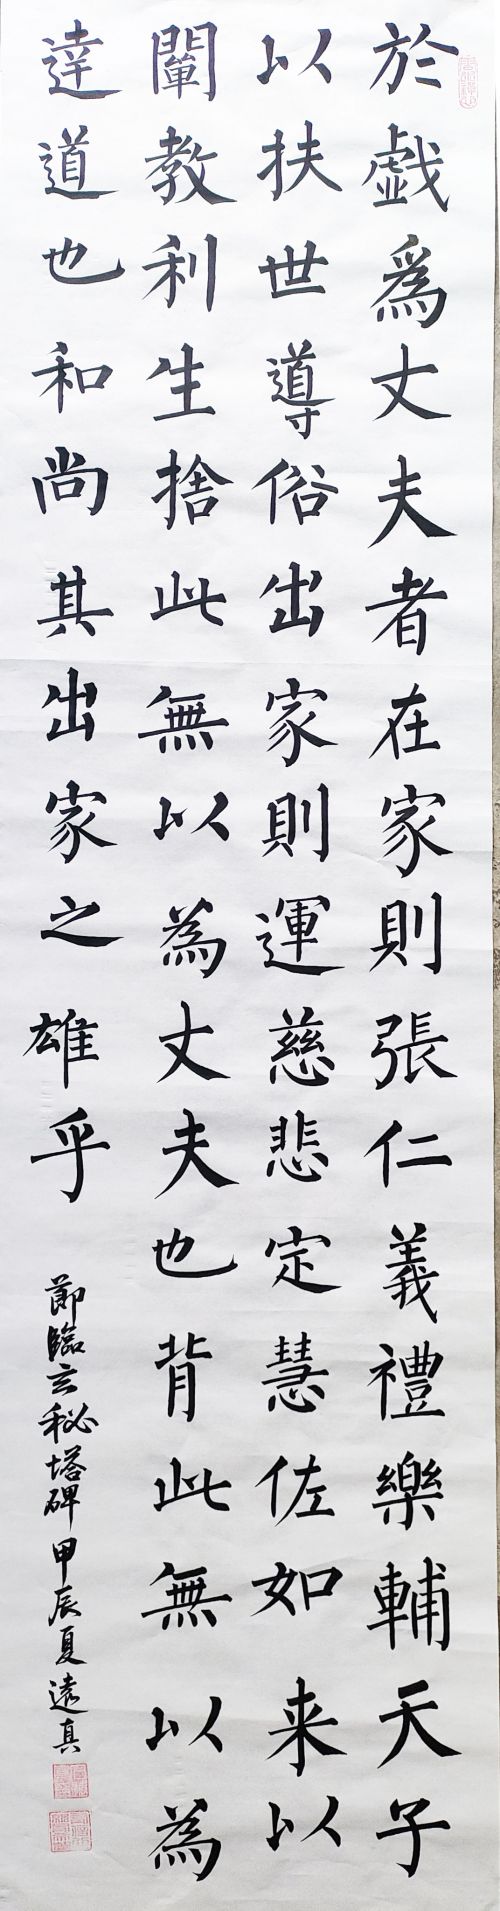 於戲爲丈夫者在家則張仁義禮樂輔天子
以扶世導俗出家則運慈悲定慧佐如来以
闡教利生捨此無以為丈夫也背此無以為
達道也和尚其出家之雄乎
節臨玄秘塔碑甲辰夏遠真